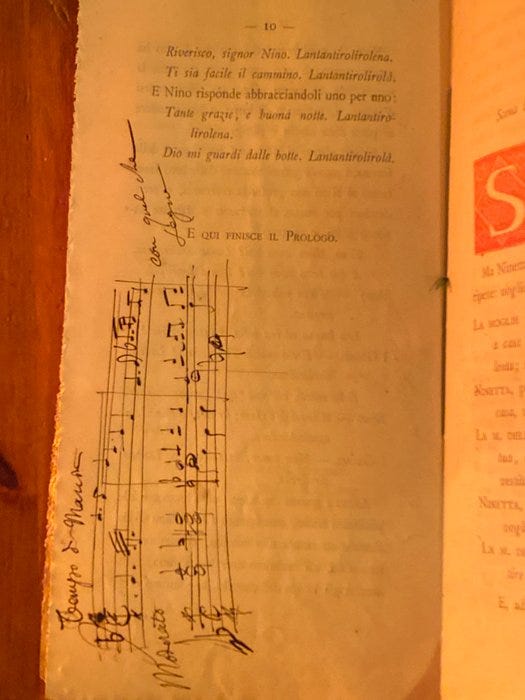 — 10 —
Riverisco, signor Nino. Lantantirolirolena.
Ti sia facile il cammino. Lantantirolirolà.
E Nino risponde abbracciandoli uno per uno:
Tante grazie, e buona notte. Lantantiro-
lirolena.
Dio mi guardi dalle botte. Lantantirolirolà.
E QUI FINISCE IL PROLOGO.
con qual che
segno
Tempo di
Moderato
S
Ma Ninett
ripete: vogli
LA MOGLIE
NINETTA,
LA M. DEL
NINETTA,
LA M. D